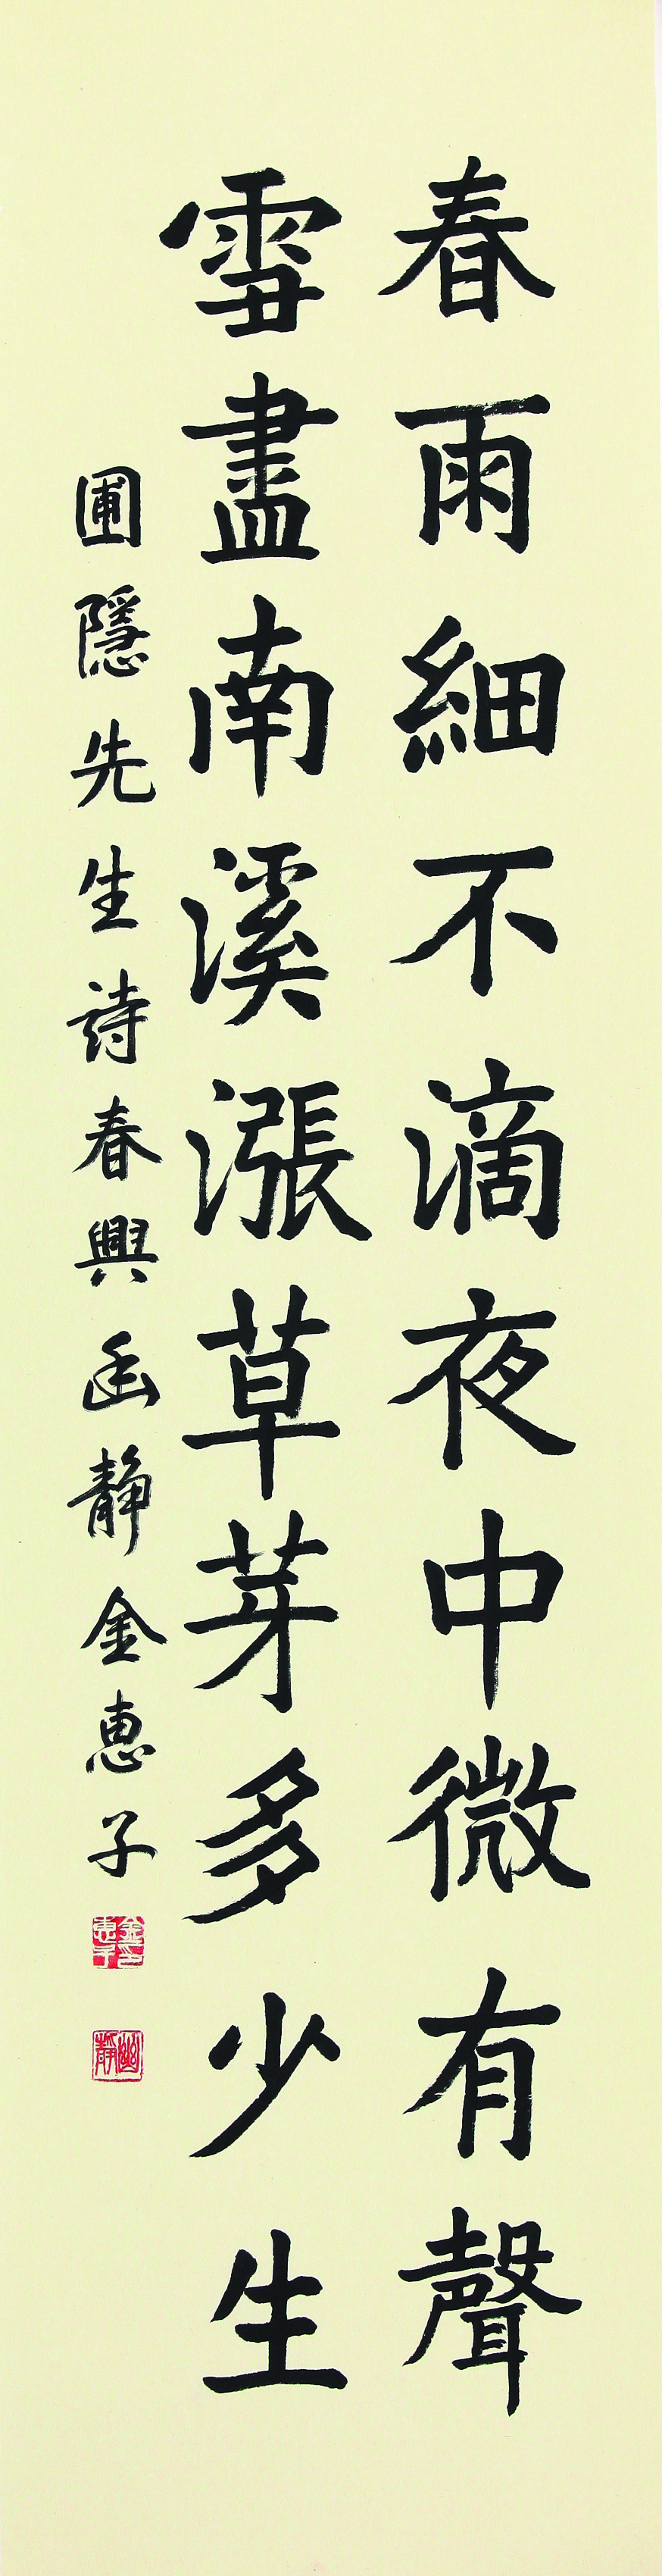 春雨細不滴夜中微有聲
雪盡南溪漲草芽多少生
圃隱先生詩春興幽靜金惠子
金惠子印
幽靜